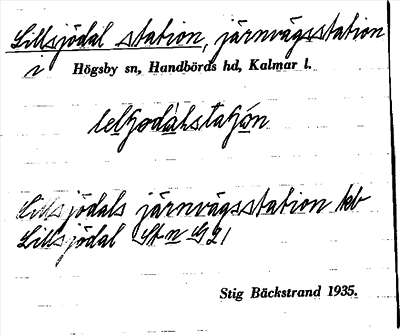 Lillsjödal station, järnvägsstation
i Högsby sn, Handbörds hd, Kalmar l.
Lillsjödals järnvägsstation kb
Lillsjödal St-n G 21
Stig Bäckstrand 1935.